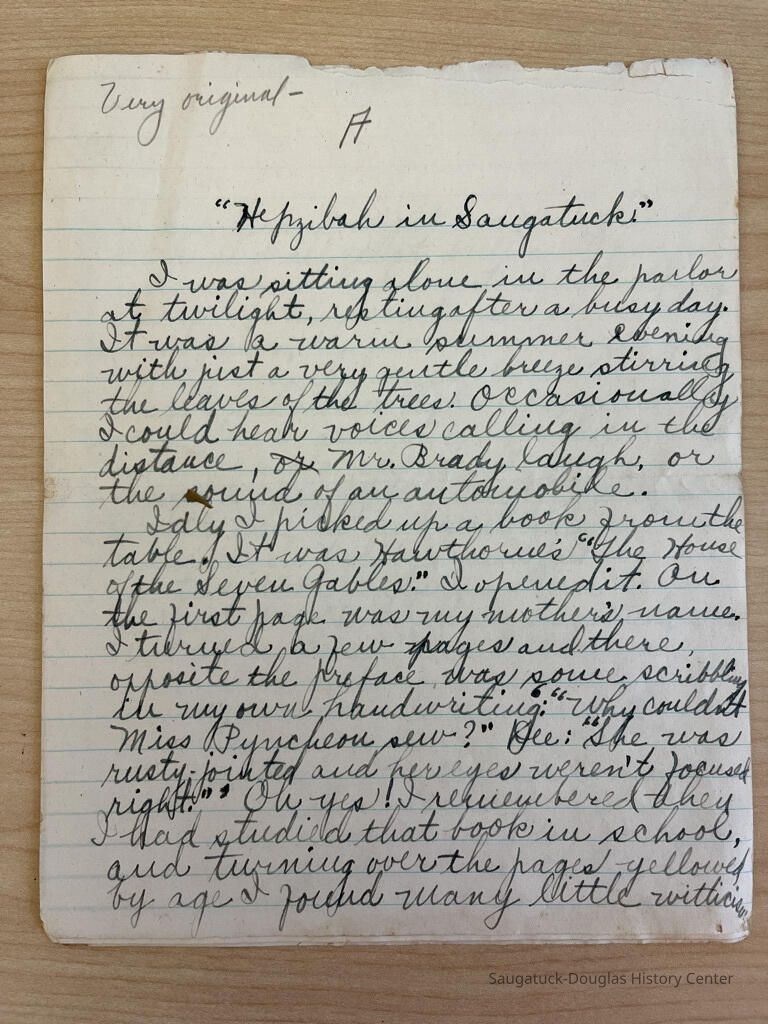 Very original –
A
"Hepzibah in Saugatuck."
I was sitting alone in the parlor
at twilight, resting after a busy day.
It was a warm summer evening
with just a very gentle breeze stirring
the leaves of the trees. Occasionally
I could hear voices calling in the
distance, or Mr. Brady laugh, or
the sound of an automobile.
Idly I picked up a book from the
table. It was Hawthorne's "The House
of the Seven Gables." I opened it. On
the first page was my mother's name.
I turned a few pages and there,
opposite the preface was some scribbling
in my own handwriting: "Why couldn't
Miss Pyncheon sew?" Dee: "She was
rusty-jointed and her eyes weren't focused
right." Oh yes! I remembered then
I had studied that book in school,
and turning over the pages yellowed
by age I found many little witticism
Saugatuck-Douglas History Center